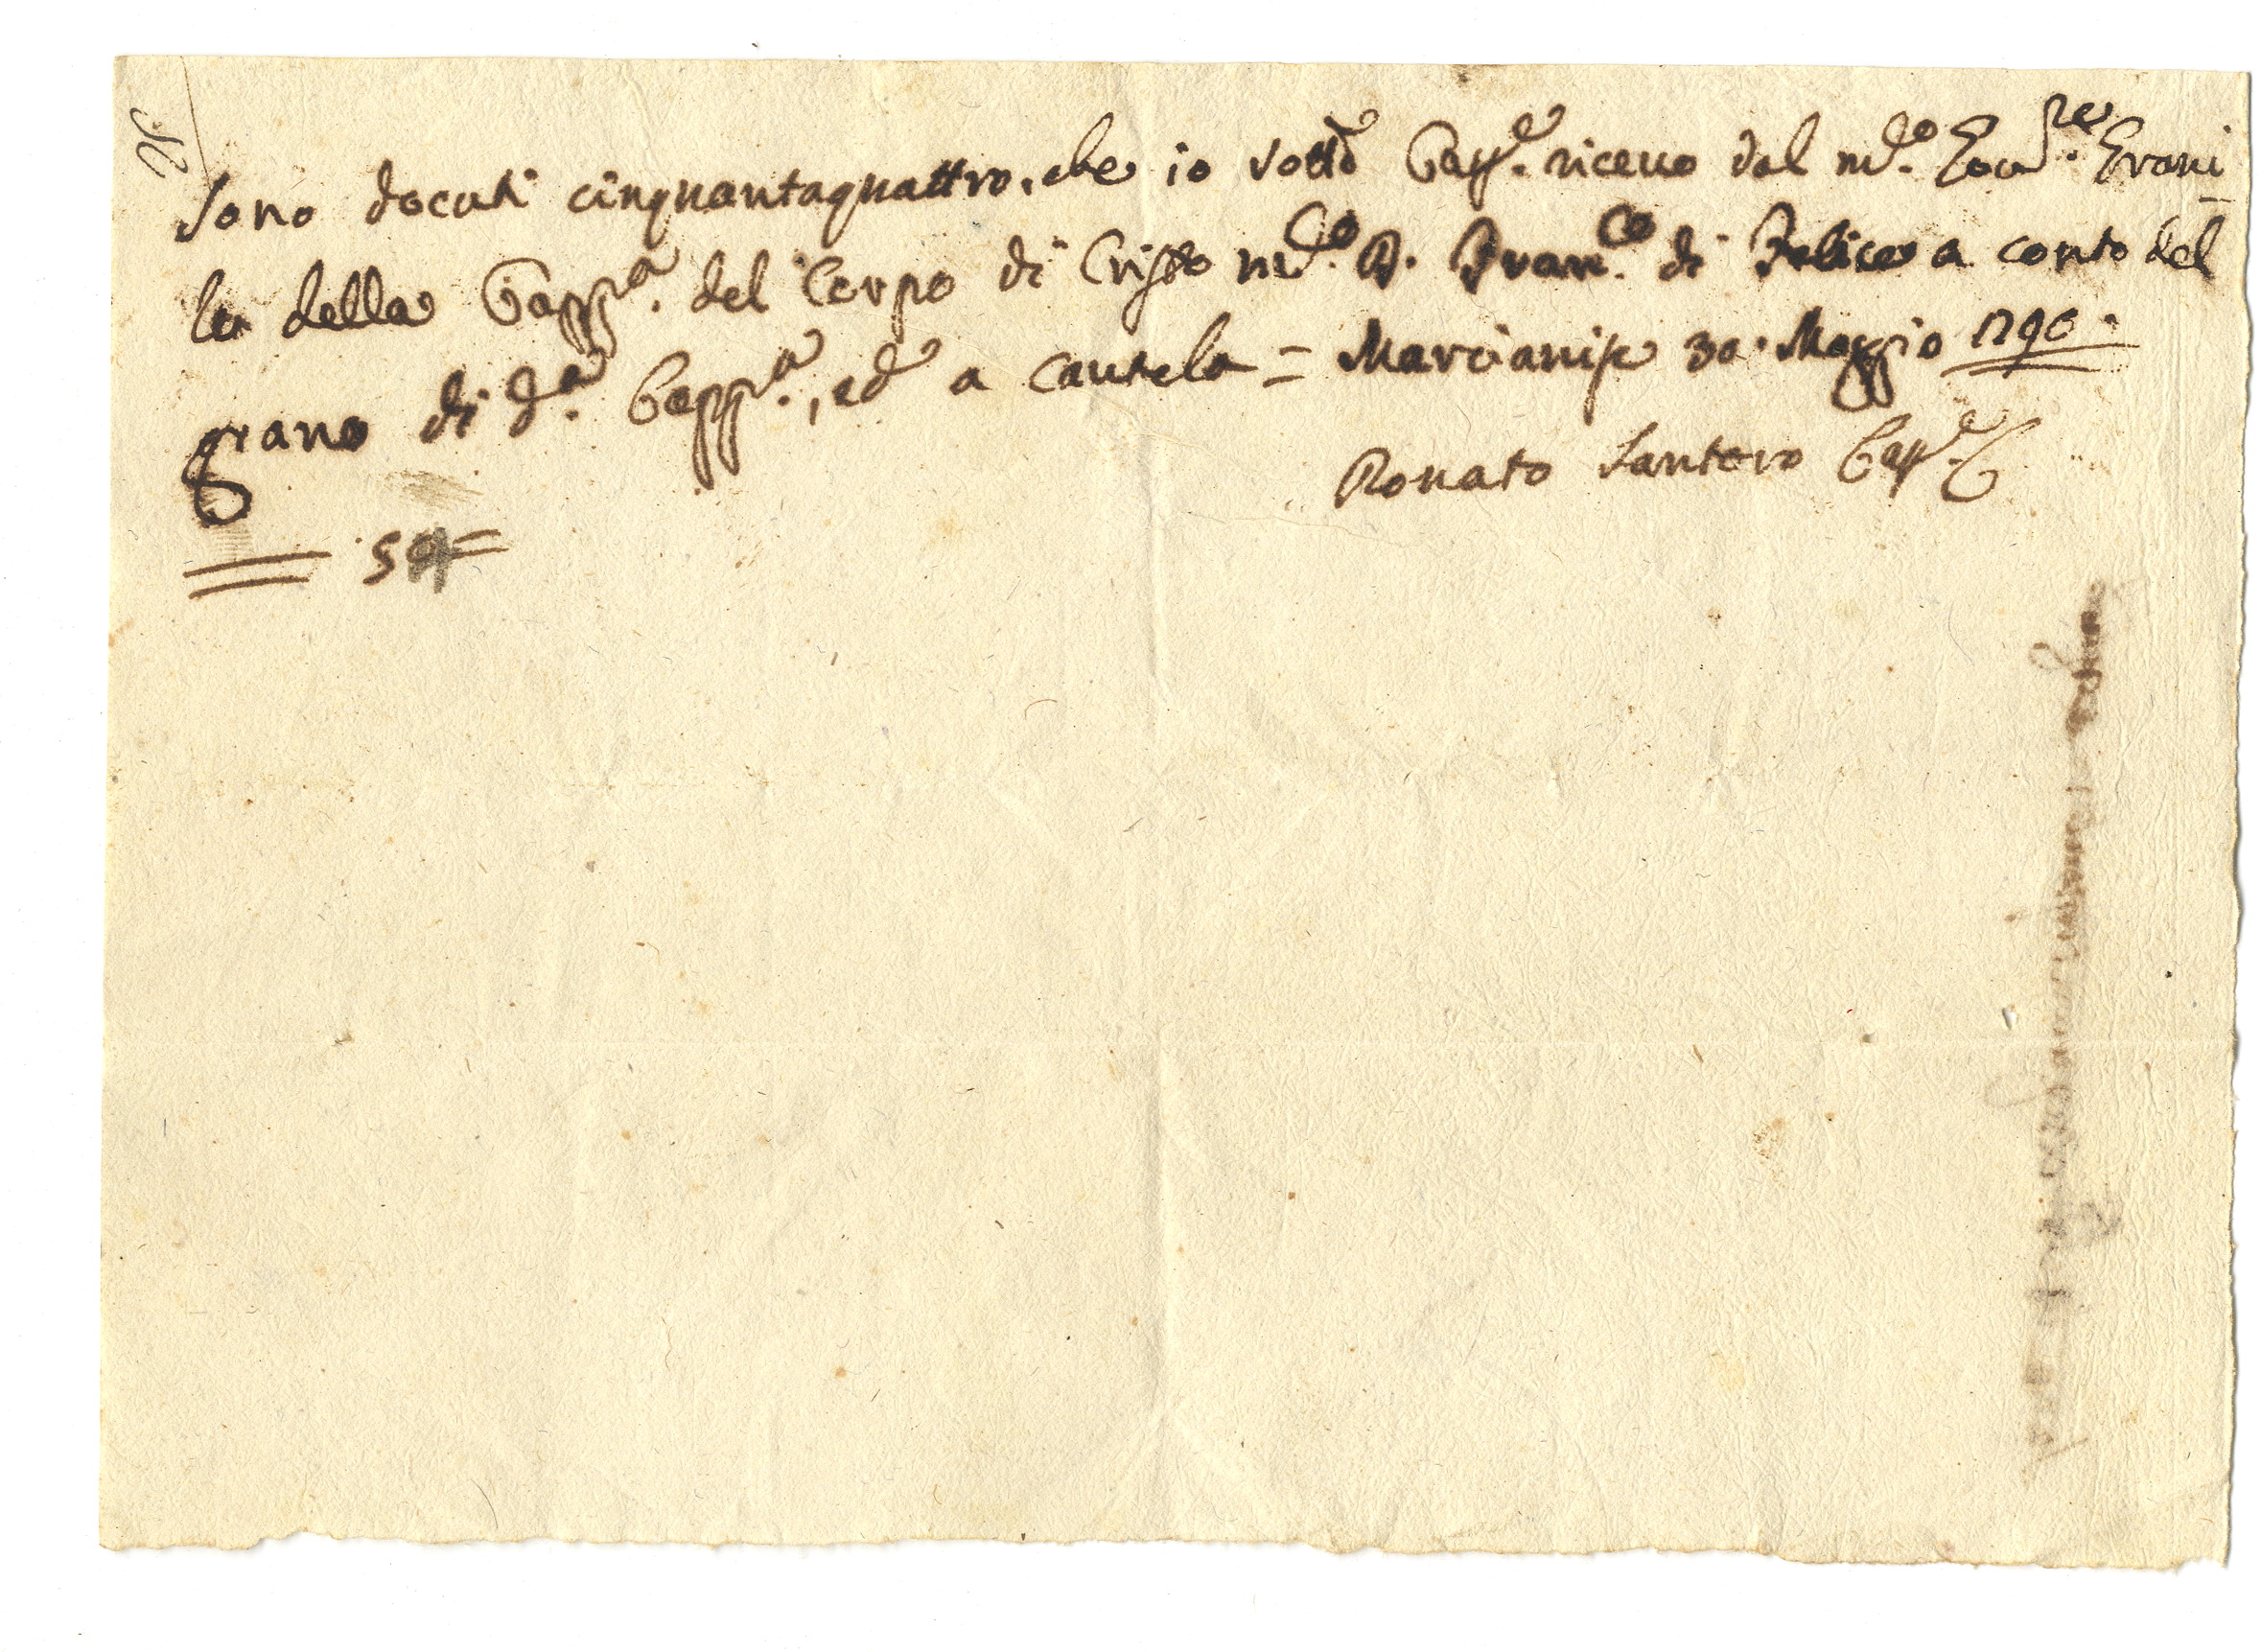 Sono docati cinquantaquattro, che io sotto Capp.e riceuo dal m.co Grani
la della Capp.a del Corpo di Cristo m.co D. Fran.co di Felice a conto del
grano di d.a Capp.a, ed a cautela = Marcianise 30. Maggio 1790.
Donato Santoro Capp.e
54=